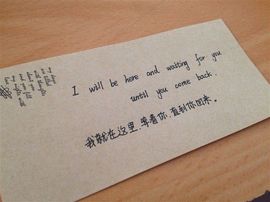 I will be here and waiting for you
until you come back.
我就在这里,等着你,直到你回来。